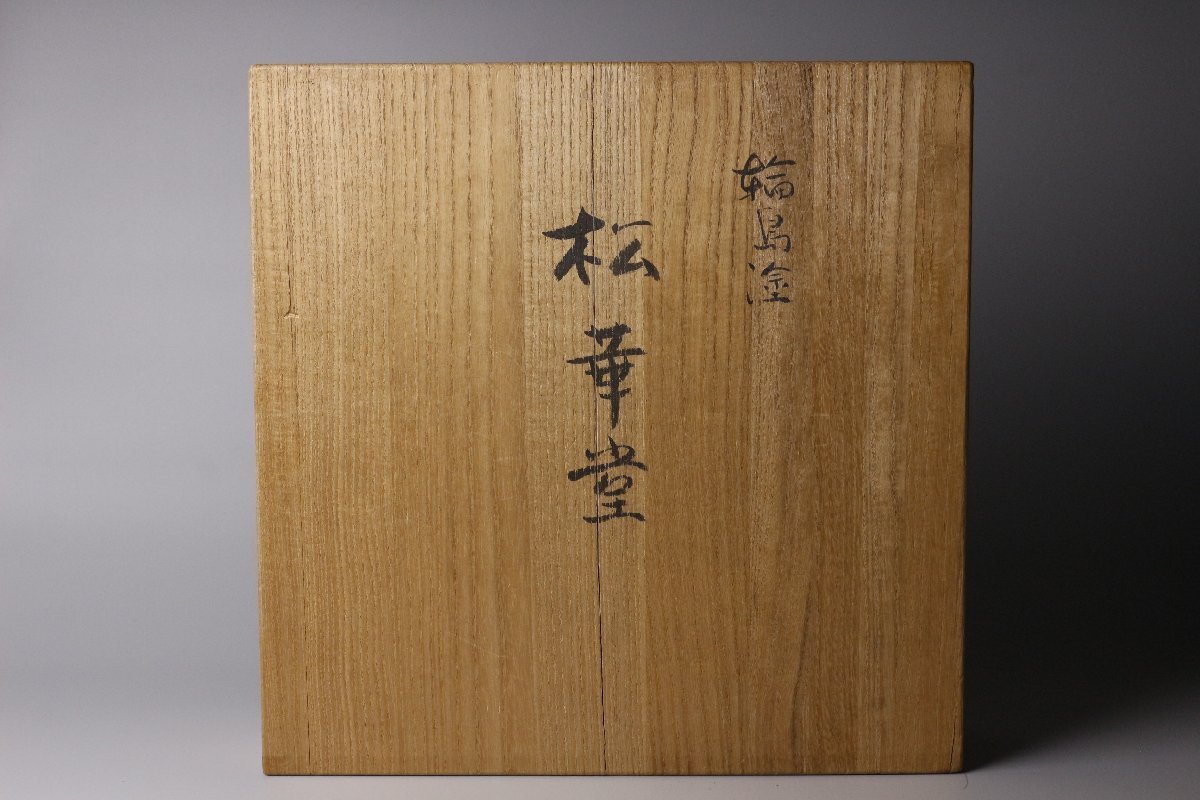 輪島塗
松華堂